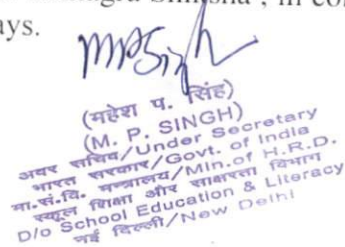 Shiksha', in co
ays.
MPSingh
(महेश प. सिंह)
(M. P. SINGH)
अवर सचिव/Under Secretary
भारत सरकार/Govt. of India
मा.सं.वि. मन्त्रालय/Min.of H.R.D.
स्कूल शिक्षा और साक्षरता विभाग
D/o School Education & Literacy
नई दिल्ली/New Delhi